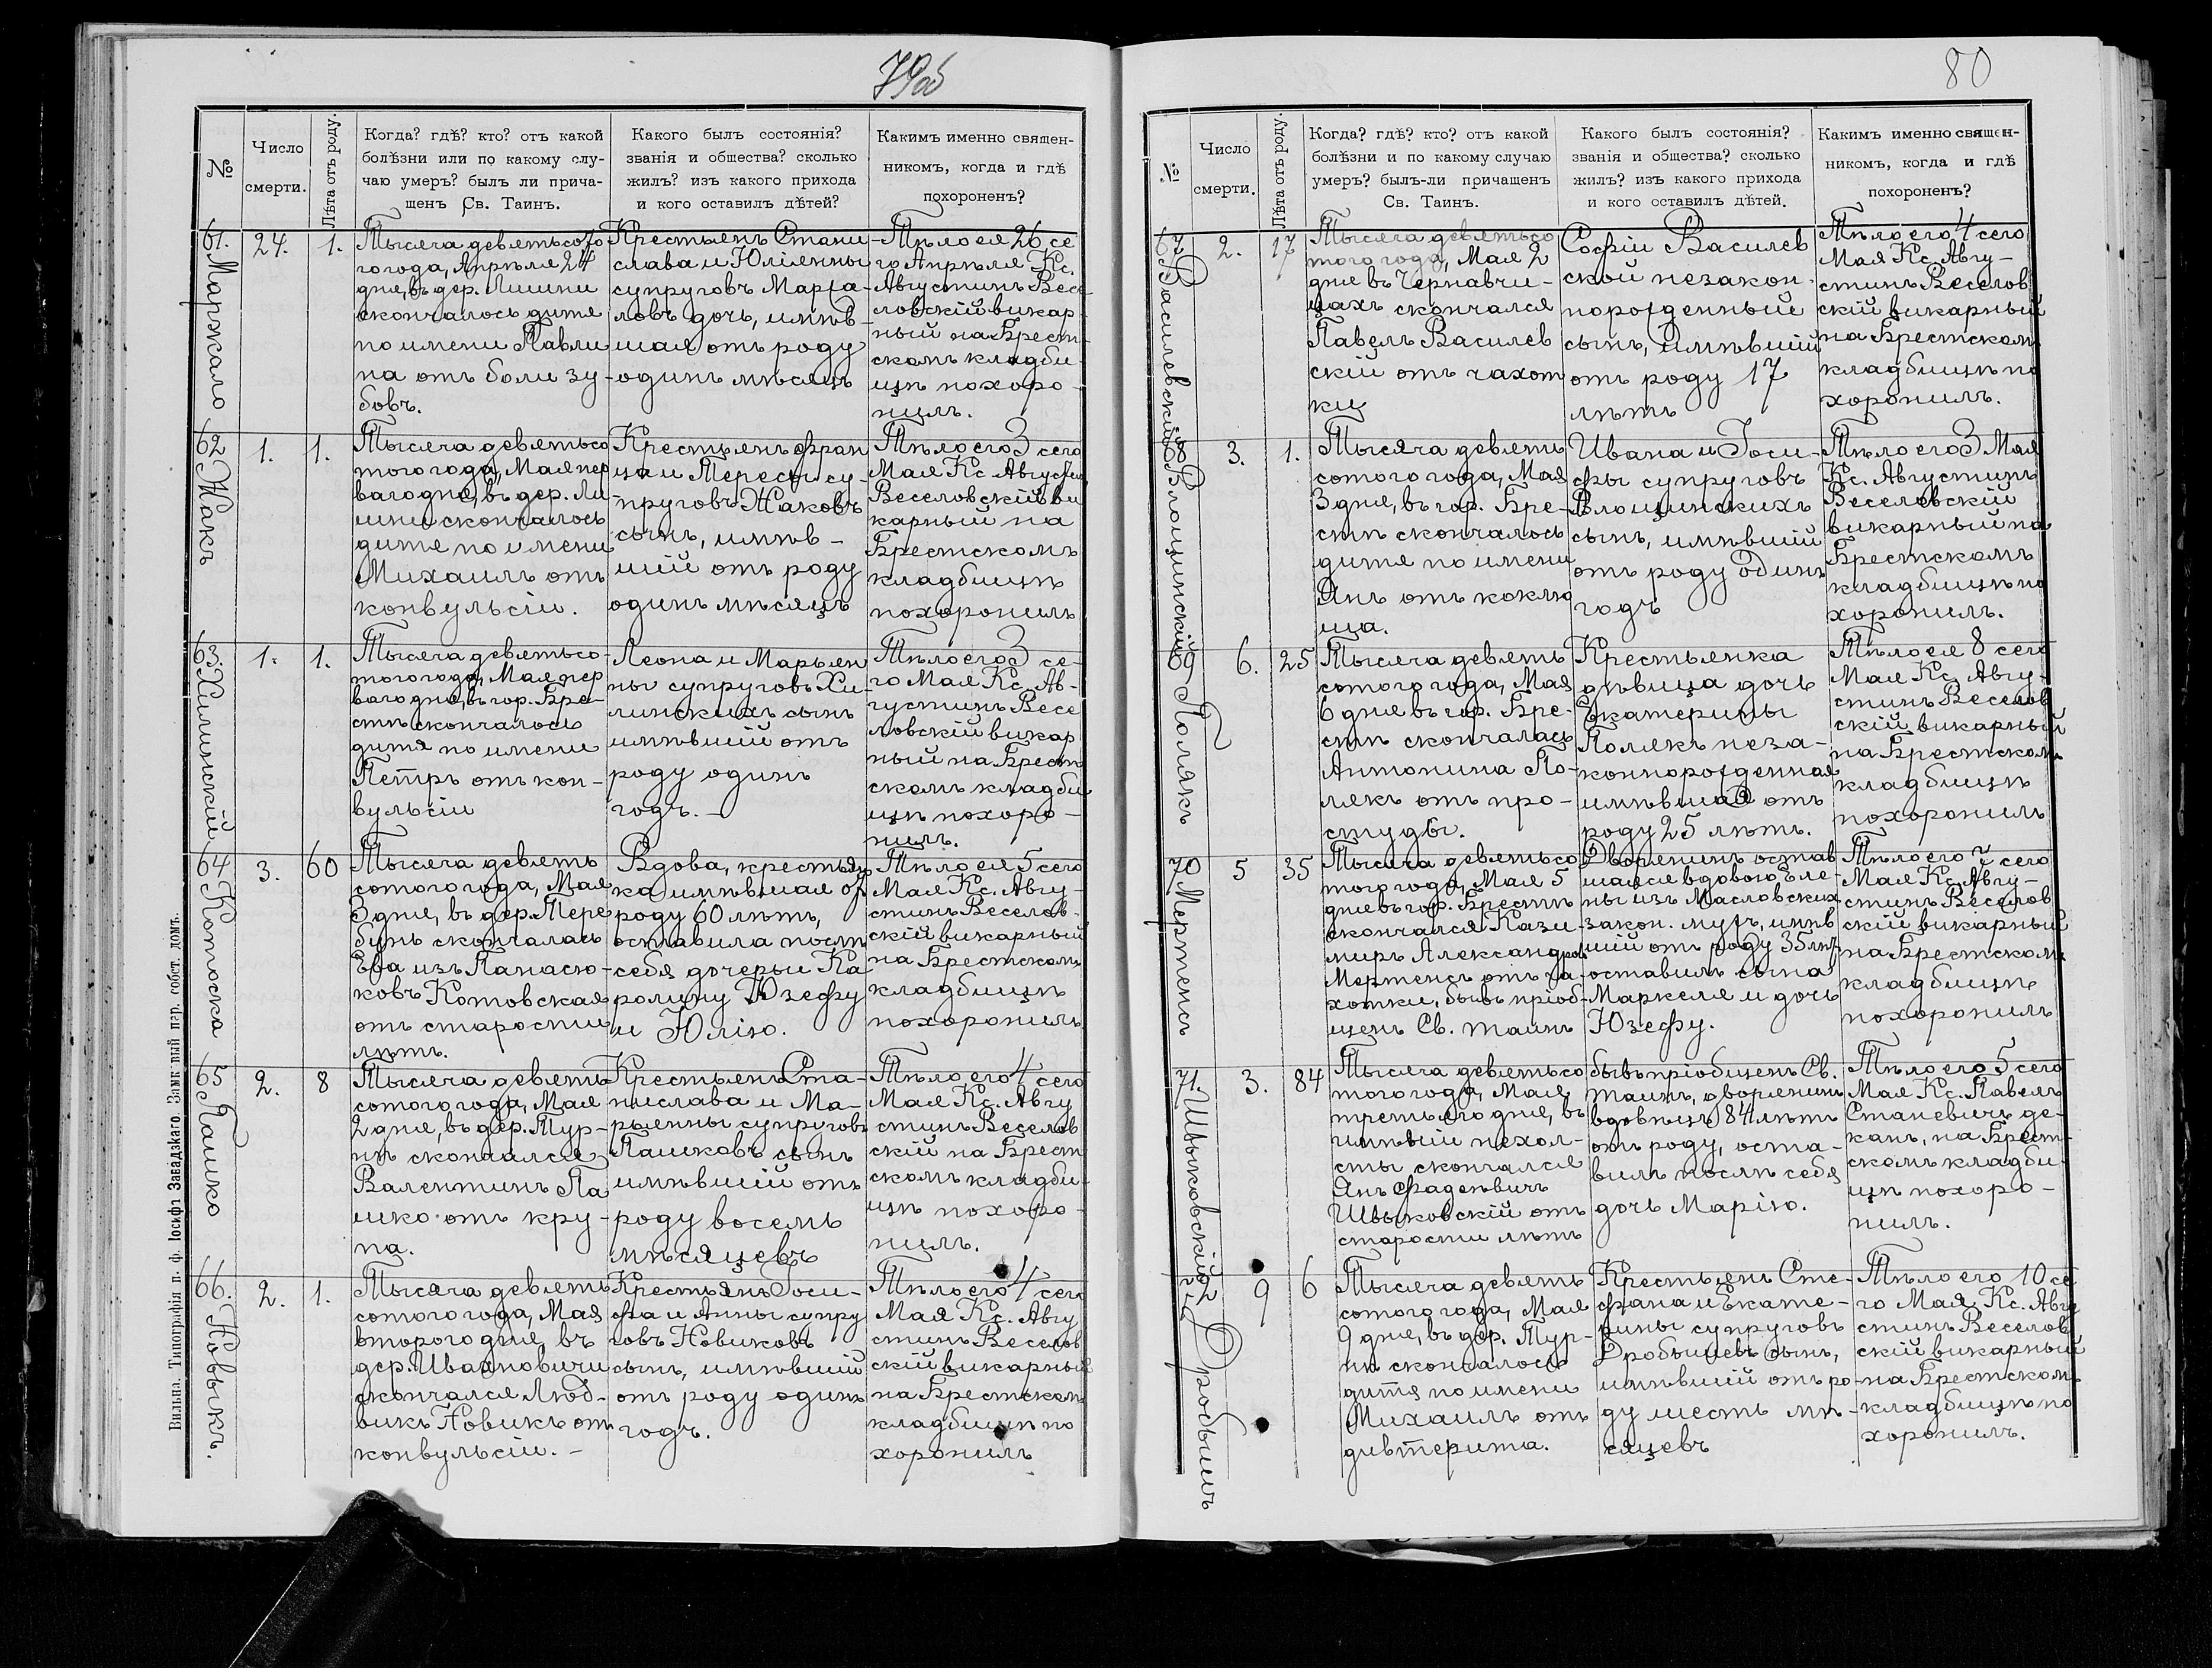 79об
№
Число
смерти.
Лѣта отъ роду.
Когда? гдѣ? кто? отъ какой
болѣзни или по какому слу-
чаю умеръ? былъ ли прича-
щенъ Св. Таинъ.
Какого былъ состоянія?
званія и общества? сколько
жилъ? изъ какого прихода
и кого оставилъ дѣтей?
Какимъ именно священ-
никомъ, когда и гдѣ
похороненъ?
61.
24.
1.
Тысяча девятьсото
го года, Апрѣля 24
дня, въ дер.
скончалось дитя
по имени Павли
на отъ боли зу-
бовъ.
Крестьянъ Стани
слава и Юліянны
супруговъ
ловъ дочь, имѣв-
шая отъ роду
одинъ мѣсяцъ
Тѣло ея 26 се
го Апрѣля Кс.
Августинъ Весе-
ловскій викар
ный на Брест-
скомъ кладби-
щѣ похоро-
нилъ.
62 Жакъ
1.
1.
Тысяча девятьсо
того года, Мая пер
ваго дня, въ дер. Ли
скончалось
дитя по имени
Михаилъ отъ
конвульсіи.
Крестьянъ Фран
ца и Тересы су-
пруговъ Жаковъ
сынъ, имѣв-
шій отъ роду
одинъ мѣсяцъ
Тѣло его 3 сего
Мая Кс. Августинъ
Веселовскій ви
карный на
Брестскомъ
кладбищѣ
похоронилъ
63. Хилинскій
1.
1.
Тысяча девятьсо-
того года, Мая пер
ваго дня, въ гор. Бре-
стѣ скончалось
дитя по имени
Петръ отъ кон-
вульсіи
Леона и Марьян
ны супруговъ Хи-
линскихъ сынъ
имѣвшій отъ
роду одинъ
годъ.-
Тѣло его 3 се-
го Мая Кс. Ав-
густинъ Весе
ловскій викар
ный на Брест
скомъ кладби
щѣ похоро-
нилъ.
64
3.
60
Тысяча девять
сотого года, Мая
3 дня, въ дер. Тере
бунь скончалась
Ева изъ Панасю-
ковъ Котовская
отъ старости
лѣтъ.
Вдова, крестьян
ка имѣвшая от
роду 60 лѣтъ,
оставила послѣ
себя дочерьи Ка
ролину Юзефу
и Юлію.
Тѣло ея 5 сего
Мая Кс. Авгу-
стинъ Веселов-
скій викарный
на Брестскомъ
кладбищѣ
похоронилъ
65 Пашко
2.
8
Тысяча девять
сотого года, Мая
2 дня, въ дер. Тур-
нѣ скончался
Валентинъ Па
шко отъ кру-
па.
Крестьянъ Ста-
нислава и Ма-
рьянны супруговъ
Пашковъ сынъ
имѣвшій отъ
роду восемь
мѣсяцевъ
Тѣло его 4 сего
Мая Кс. Авгу
стинъ Веселов
скій на Брест
скомъ кладби-
щѣ похоро-
нилъ.
66. Новыкъ.
2.
1.
Тысяча девять
сотого года, Мая
второго дня, въ
дер. Ивахновичи
скончался Люд-
викъ Новикъ отъ
конвульсіи.-
Крестьянъ Іоси-
фа и Анны супру
говъ Новиковъ
сынъ, имѣвшій
отъ роду одинъ
годъ.
Тѣло его 4 сего
Мая Кс. Авгу
стинъ Веселов
скій викарный
на Брестскомъ
кладбищѣ по
хоронилъ
Вильна. Типографія п. ф. Іосифъ Завадзкаго. Замковый пер. собст. домъ.
80
№
Число
смерти.
Лѣта отъ роду.
Когда? гдѣ? кто? отъ какой
болѣзни и по какому случаю
умеръ? былъ-ли причащенъ
Св. Таинъ.
Какого былъ состоянія?
званія и общества? сколько
жилъ? изъ какого прихода
и кого оставилъ дѣтей.
Какимъ именно священ-
никомъ, когда и гдѣ
похороненъ?
67 Василевскій
2.
17
Тысяча девятьсо
того года, Мая 2
дня въ Чернавчи-
цахъ скончался
Павелъ Василев
скій отъ чахот
ки
Софіи Василев
ской незакон-
норожденный
сынъ, имѣвшій
отъ роду 17
лѣтъ
Тѣло его 4 сего
Мая Кс. Авгу-
стинъ Веселов
скій викарный
на Брестскомъ
кладбищѣ по
хоронилъ.
68 Влощинскій
3.
1.
Тысяча девять
сотого года, Мая
3 дня, въ гор. Бре-
стѣ скончалось
дитя по имени
Янъ отъ коклю
ша.
Ивана и Іоси-
фы супруговъ
Влощинскихъ
сынъ, имѣвшій
отъ роду одинъ
годъ
Тѣло его 3 Мая
Кс. Августинъ
Веселовскій
викарный на
Брестскомъ
кладбищѣ по
хоронилъ.
69 Полякъ
6.
25
Тысяча девять
сотого года, Мая
6 дня въ гор. Бре-
стѣ скончалась
Антонина По-
лякъ отъ про-
студы.
Крестьянка
дѣвица дочь
Екатерины
Полякъ неза-
коннорожденная
имѣвшая отъ
роду 25 лѣтъ.
Тѣло ея 8 сего
Мая Кс. Авгу-
стинъ Веселов
скій викарный
на Брестскомъ
кладбищѣ
похоронилъ
70 Мертенсъ
5
35
Тысяча девятьсо
того года, Мая 5
дня въ гор. Брестѣ
скончался Кази-
миръ Александров
Мертенсъ отъ ча-
хотки, бывъ пріоб-
щенъ Св. таинъ
Дворянинъ остав
шаяся вдовою Еле-
ны изъ Масловскихъ
закон. мужъ, имѣв
шій отъ роду 35 лѣт
оставилъ сына
Маркеля и дочь
Юзефу.
Тѣло его 7 сего
Мая Кс. Авгу-
стинъ Веселов
скій викарный
на Брестскомъ
кладбищѣ
похоронилъ
71. Швыковскій
3.
84
Тысяча девятьсо
того года, Мая
третьяго дня, въ
имѣніи
скончался
Янъ Фадѣевичъ
Швыковскій отъ
старости лѣтъ
бывъ пріобщенъ Св.
таинъ, дворянинъ
вдовецъ 84 лѣтъ
отъ роду, оста-
вилъ послѣ себя
дочь Марію.
Тѣло его 5 сего
Мая Кс. Павелъ
Станевичъ де-
канъ, на Брест-
скомъ кладби-
щѣ похоро-
нилъ.
72 Дробышъ
9
6
Тысяча девять
сотого года, Мая
9 дня, въ дер. Тур-
нѣ скончалось
дитя по имени
Михаилъ отъ
дивтерита.
Крестьянъ Сте-
фана и Екате-
рины супруговъ
Дробышевъ сынъ,
имѣвшій отъ ро-
ду шесть мѣ-
сяцевъ
Тѣло его 10 се
го Мая Кс. Авгу
стинъ Веселов
скій викарный
на Брестскомъ
кладбищѣ по
хоронилъ.